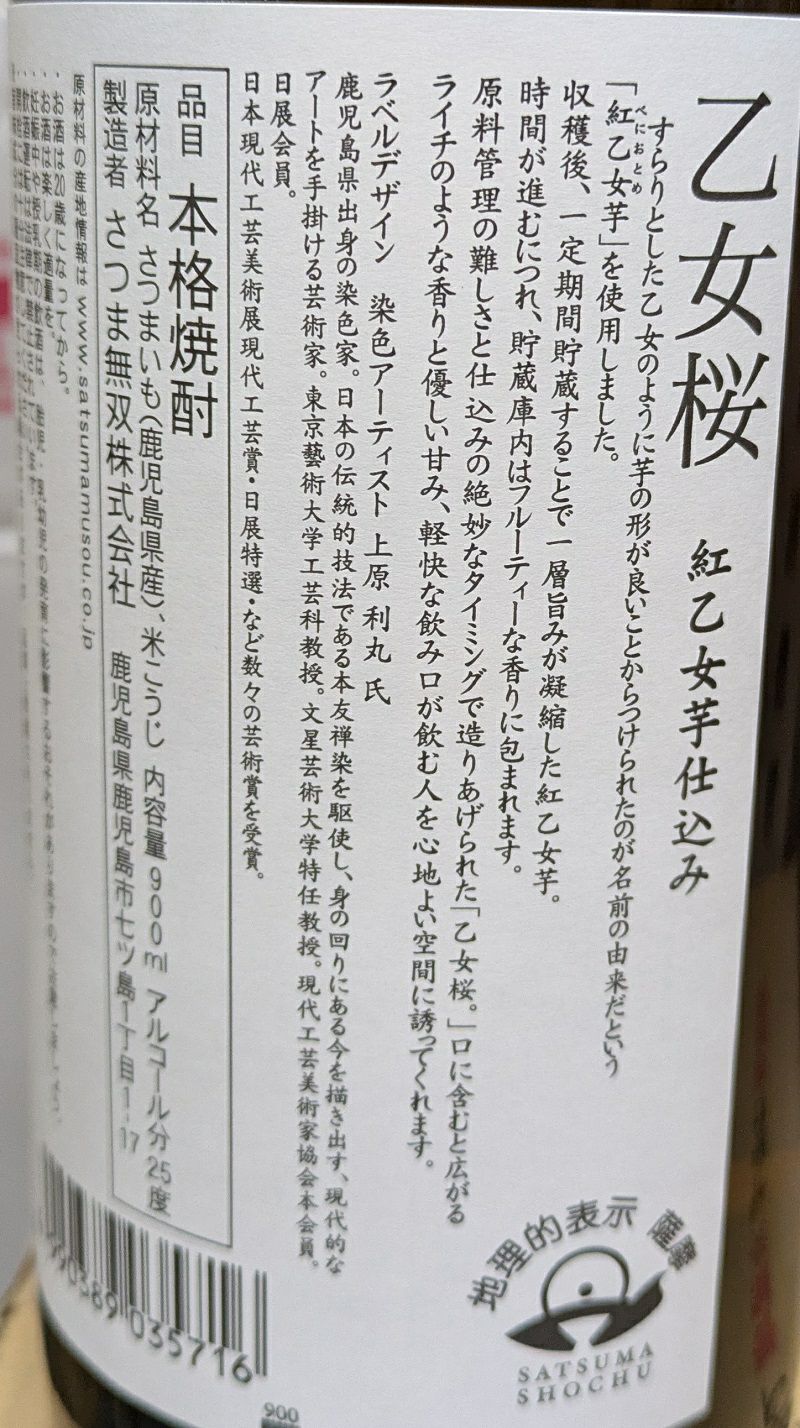 乙女桜 紅乙女芋仕込み
すらりとした乙女のように芋の形が良いことからつけられたのが名前の由来だという
べにおとめ
「紅乙女芋」を使用しました。
収穫後、一定期間貯蔵することで一層旨みが凝縮した紅乙女芋。
時間が進むにつれ、貯蔵庫内はフルーティーな香りに包まれます。
原料管理の難しさと仕込みの絶妙なタイミングで造りあげられた「乙女桜。」口に含むと広がる
ライチのような香りと優しい甘み、軽快な飲み口が飲む人を心地よい空間に誘ってくれます。
ラベルデザイン 染色アーティスト 上原 利丸 氏
鹿児島県出身の染色家。日本の伝統的技法である本友禅染を駆使し、身の回りにある今を描き出す、現代的な
アートを手掛ける芸術家。東京藝術大学工芸科教授。文星芸術大学特任教授。現代工芸美術家協会本会員。
日展会員。
日本現代工芸美術展現代工芸賞・日展特選・など数々の芸術賞を受賞。
品目 本格焼酎
原材料名 さつまいも（鹿児島県産）、米こうじ 内容量 900ml アルコール分 25度
製造者 さつま無双株式会社 鹿児島県鹿児島市七ツ島1丁目1-17
原材料の産地情報は www.satsumamusou.co.jp
・お酒は20歳になってから。
・お酒は楽しく適量を。
・妊娠中や授乳期の飲酒は、胎児・乳幼児の発育に影響するおそれがあります
・飲酒運転は法律で禁止されています。
地理的表示 薩摩
SATSUMA
SHOCHU
990389 035716
900